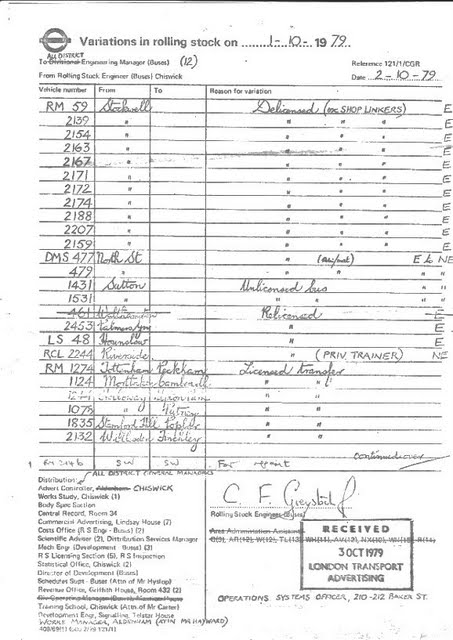 Variations in rolling stock on 1-10-1979.
ALL DISTRICT
To Divisional Engineering Manager (Buses) (12)
Reference 121/1/CGR
From Rolling Stock Engineer (Buses) Chiswick
Date 2-10-79
Vehicle number From To Reason for variation
RM 59 Stockwell Delicensed (ex SHOP LINKERS) E
2139 " " " " E
2154 " " " " E
2163 " " " " E
2167 " " " " E
2171 " " " " E
2172 " " " " E
2174 " " " " E
2188 " " " " E
2207 " " " " E
2159 " " " " E
DMS 477 North St " E & NE
479 " " " " "
1431 Sutton Unlicensed bus " "
1531 " " " " "
461 Walthamstow Relicensed E
2453 Palmers Grn " E
LS 48 Hounslow " E
RCL 2244 Riverside " (PRIV. TRAINER) NE
RM 1274 Tottenham Peckham Licensed transfer
1124 Mortlake Camberwell " "
Holloway
1075 " Putney
1835 Stamford Hill Poplar
2132 Willesden Finchley
continued over
RM 2146 SW SW For repaint
ALL DISTRICT GENERAL MANAGERS
Distribution:
Advert Controller, Aldenham CHISWICK
Works Study, Chiswick (1)
Body Spec Section
Central Record, Room 34
Commercial Advertising, Lindsay House (2)
Costs Office (R S Eng - Buses) (2)
Scientific Adviser (2), Distribution Services Manager
Mech Engr (Development - Buses) (3)
R S Licensing Section (5), R S Inspection
Statistical Office, Chiswick (2)
Director of Development (Buses)
Schedules Supt - Buses (Attn of Mr Hyslop)
Revenue Office, Griffith House, Room 432 (2)
Training School, Chiswick (Attn of Mr Carter)
Development Eng, Signalling, Telstar House
WORKS MANAGER, ALDENHAM (ATTN MR HAYWARD)
C. F. Greystock
Rolling Stock Engineer (Buses)
RECEIVED
3 OCT 1979
LONDON TRANSPORT
ADVERTISING
OPERATIONS SYSTEMS OFFICER, 210-212 BAKER ST.